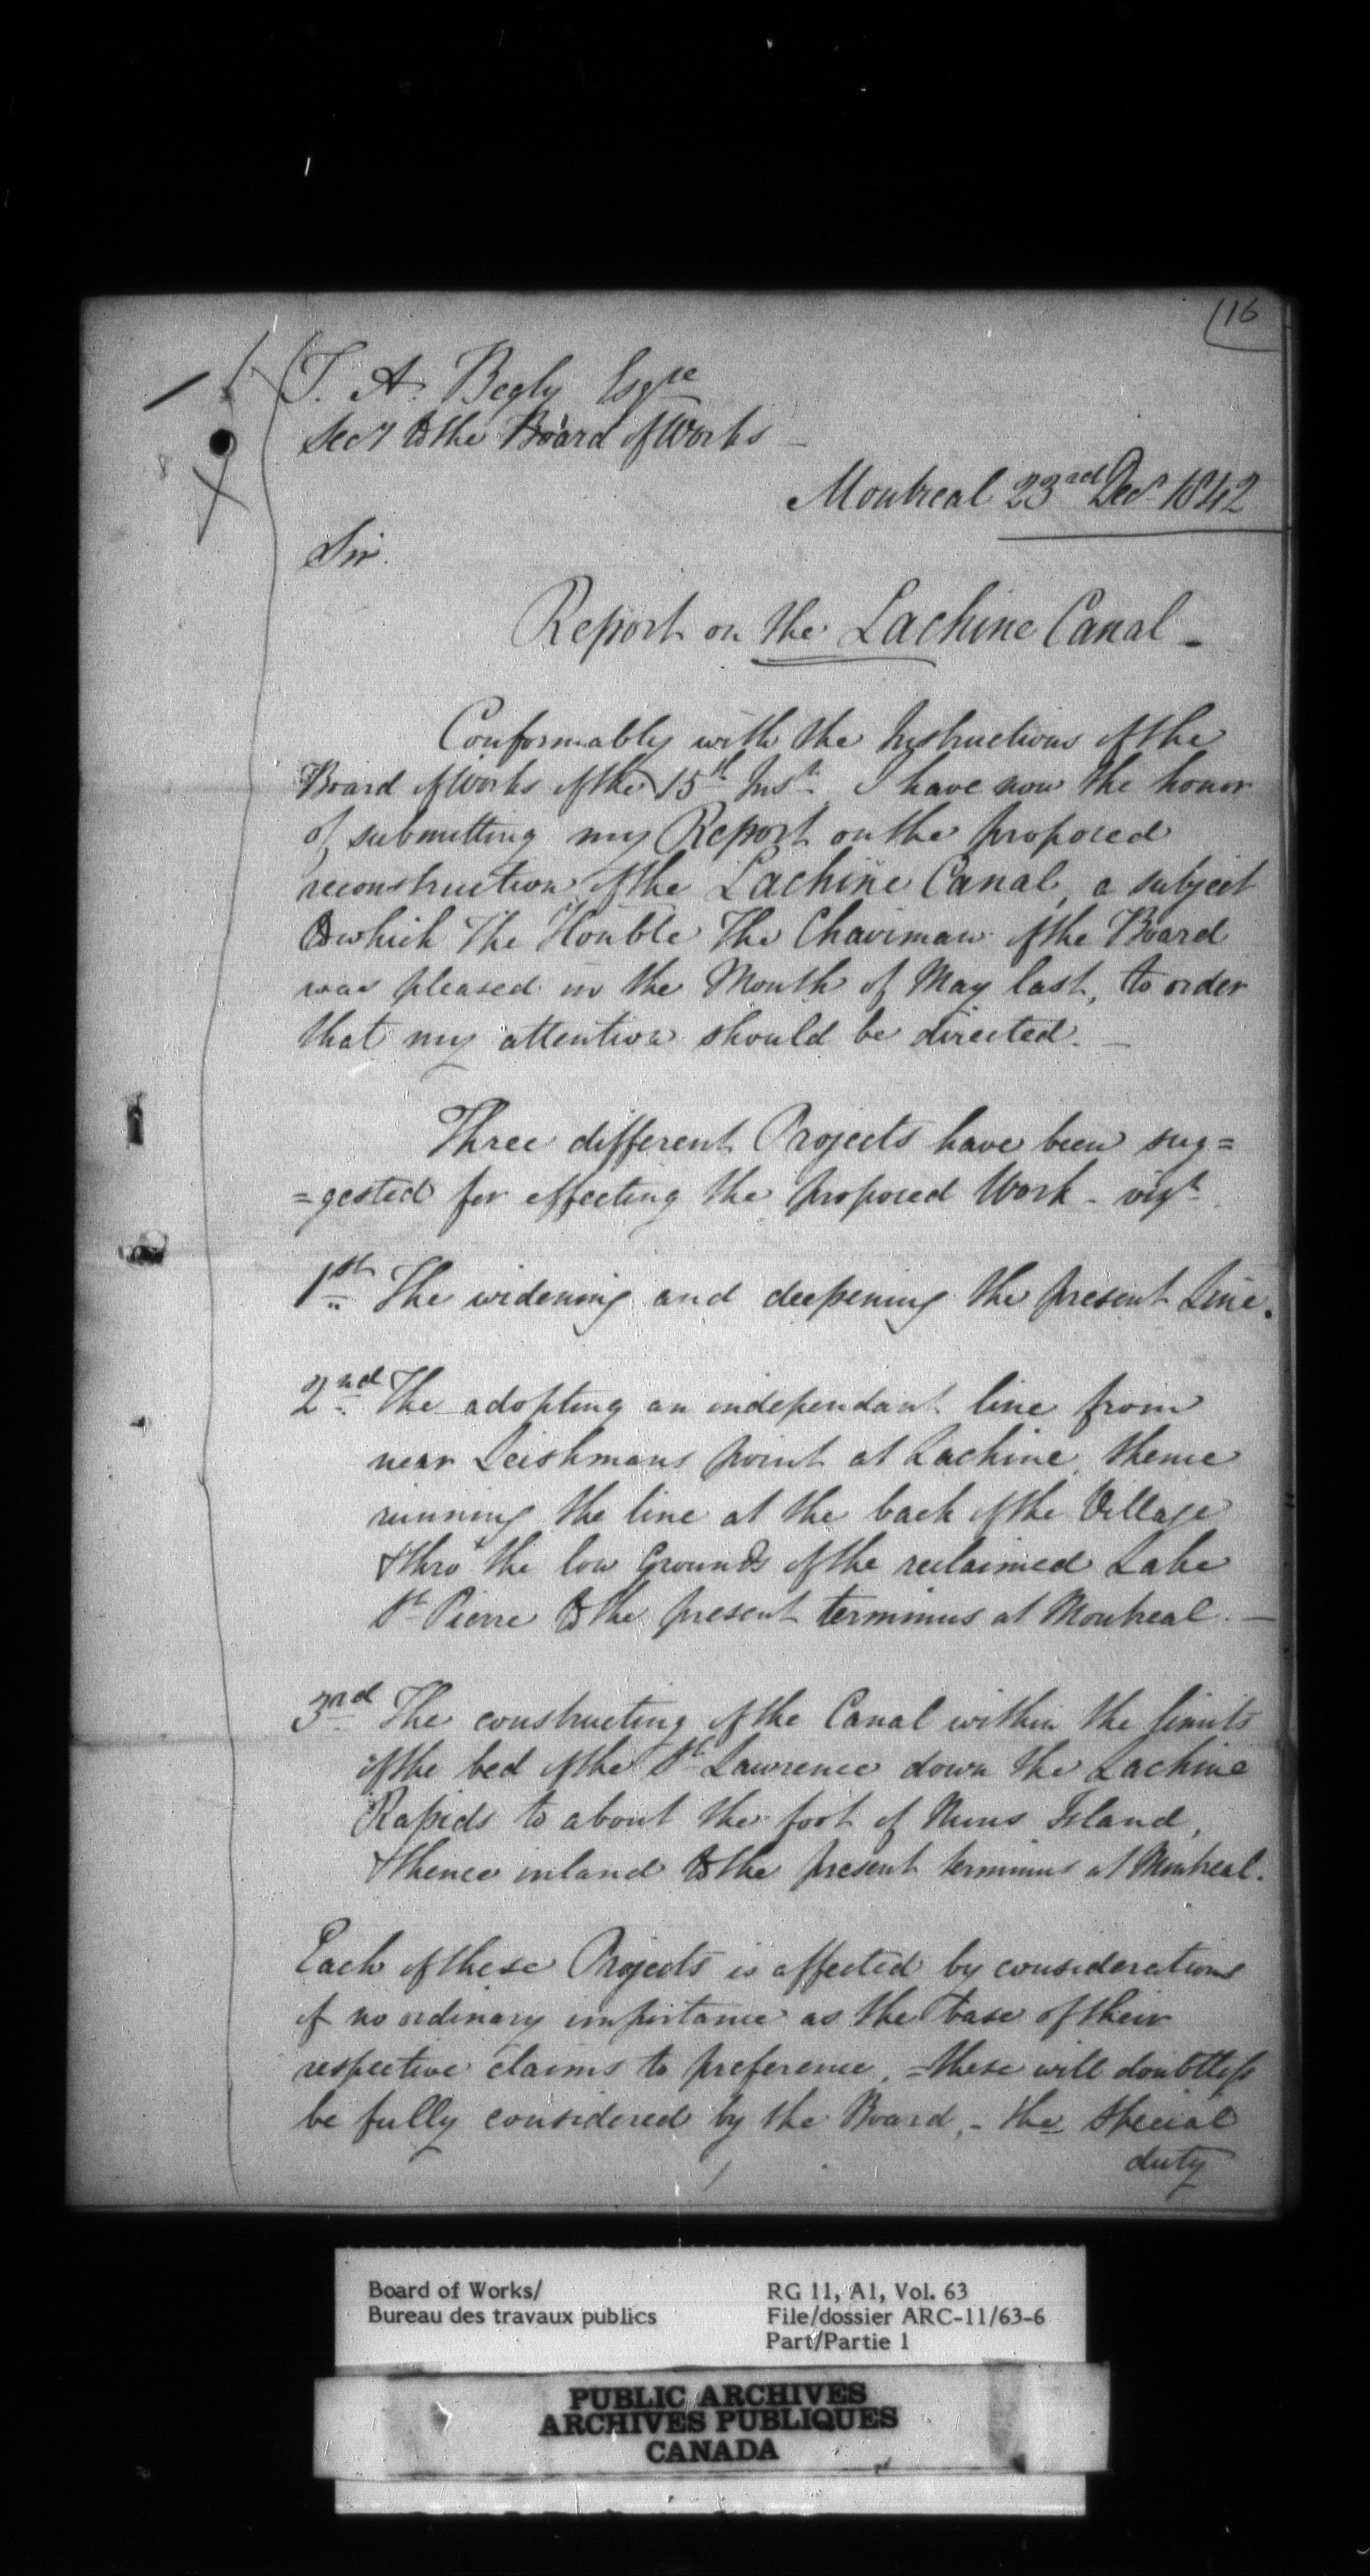 116
T. A. Begly Esqre
Secy to the Board of Works –
Montreal 23rd Decr 1842
Sir.
Report on the Lachine Canal –
Conformably with the Instructions of the
Board of Works of the 15th Inst. I have now the honor
of submitting my Report on the proposed
reconstruction of the Lachine Canal, a subject
to which The Honble The Chairman of the Board
was pleased in the Month of May last, to order
that my attention should be directed. –
Three different Projects have been sug=
=gested for effecting the proposed Work – vizt.
1st The widening and deepening the present Line.
2nd The adopting an independant line from
near Leishmans point at Lachine, thence
running the line at the back of the Village
& thro' the low Grounds of the reclaimed Lake
St Pierre to the present terminus at Montreal. –
3rd The constructing of the Canal within the limits
of the bed of the St Lawrence down the Lachine
Rapids to about the foot of Nuns Island,
& thence inland to the present terminus at Montreal.
Each of these Projects is affected by considerations
of no ordinary importance as the base of their
respective claims to preference, – these will doubtless
be fully considered by the Board, – the special
duty
Board of Works/
Bureau des travaux publics
RG 11, A1, Vol. 63
File/dossier ARC-11/63-6
Part/Partie 1
PUBLIC ARCHIVES
ARCHIVES PUBLIQUES
CANADA